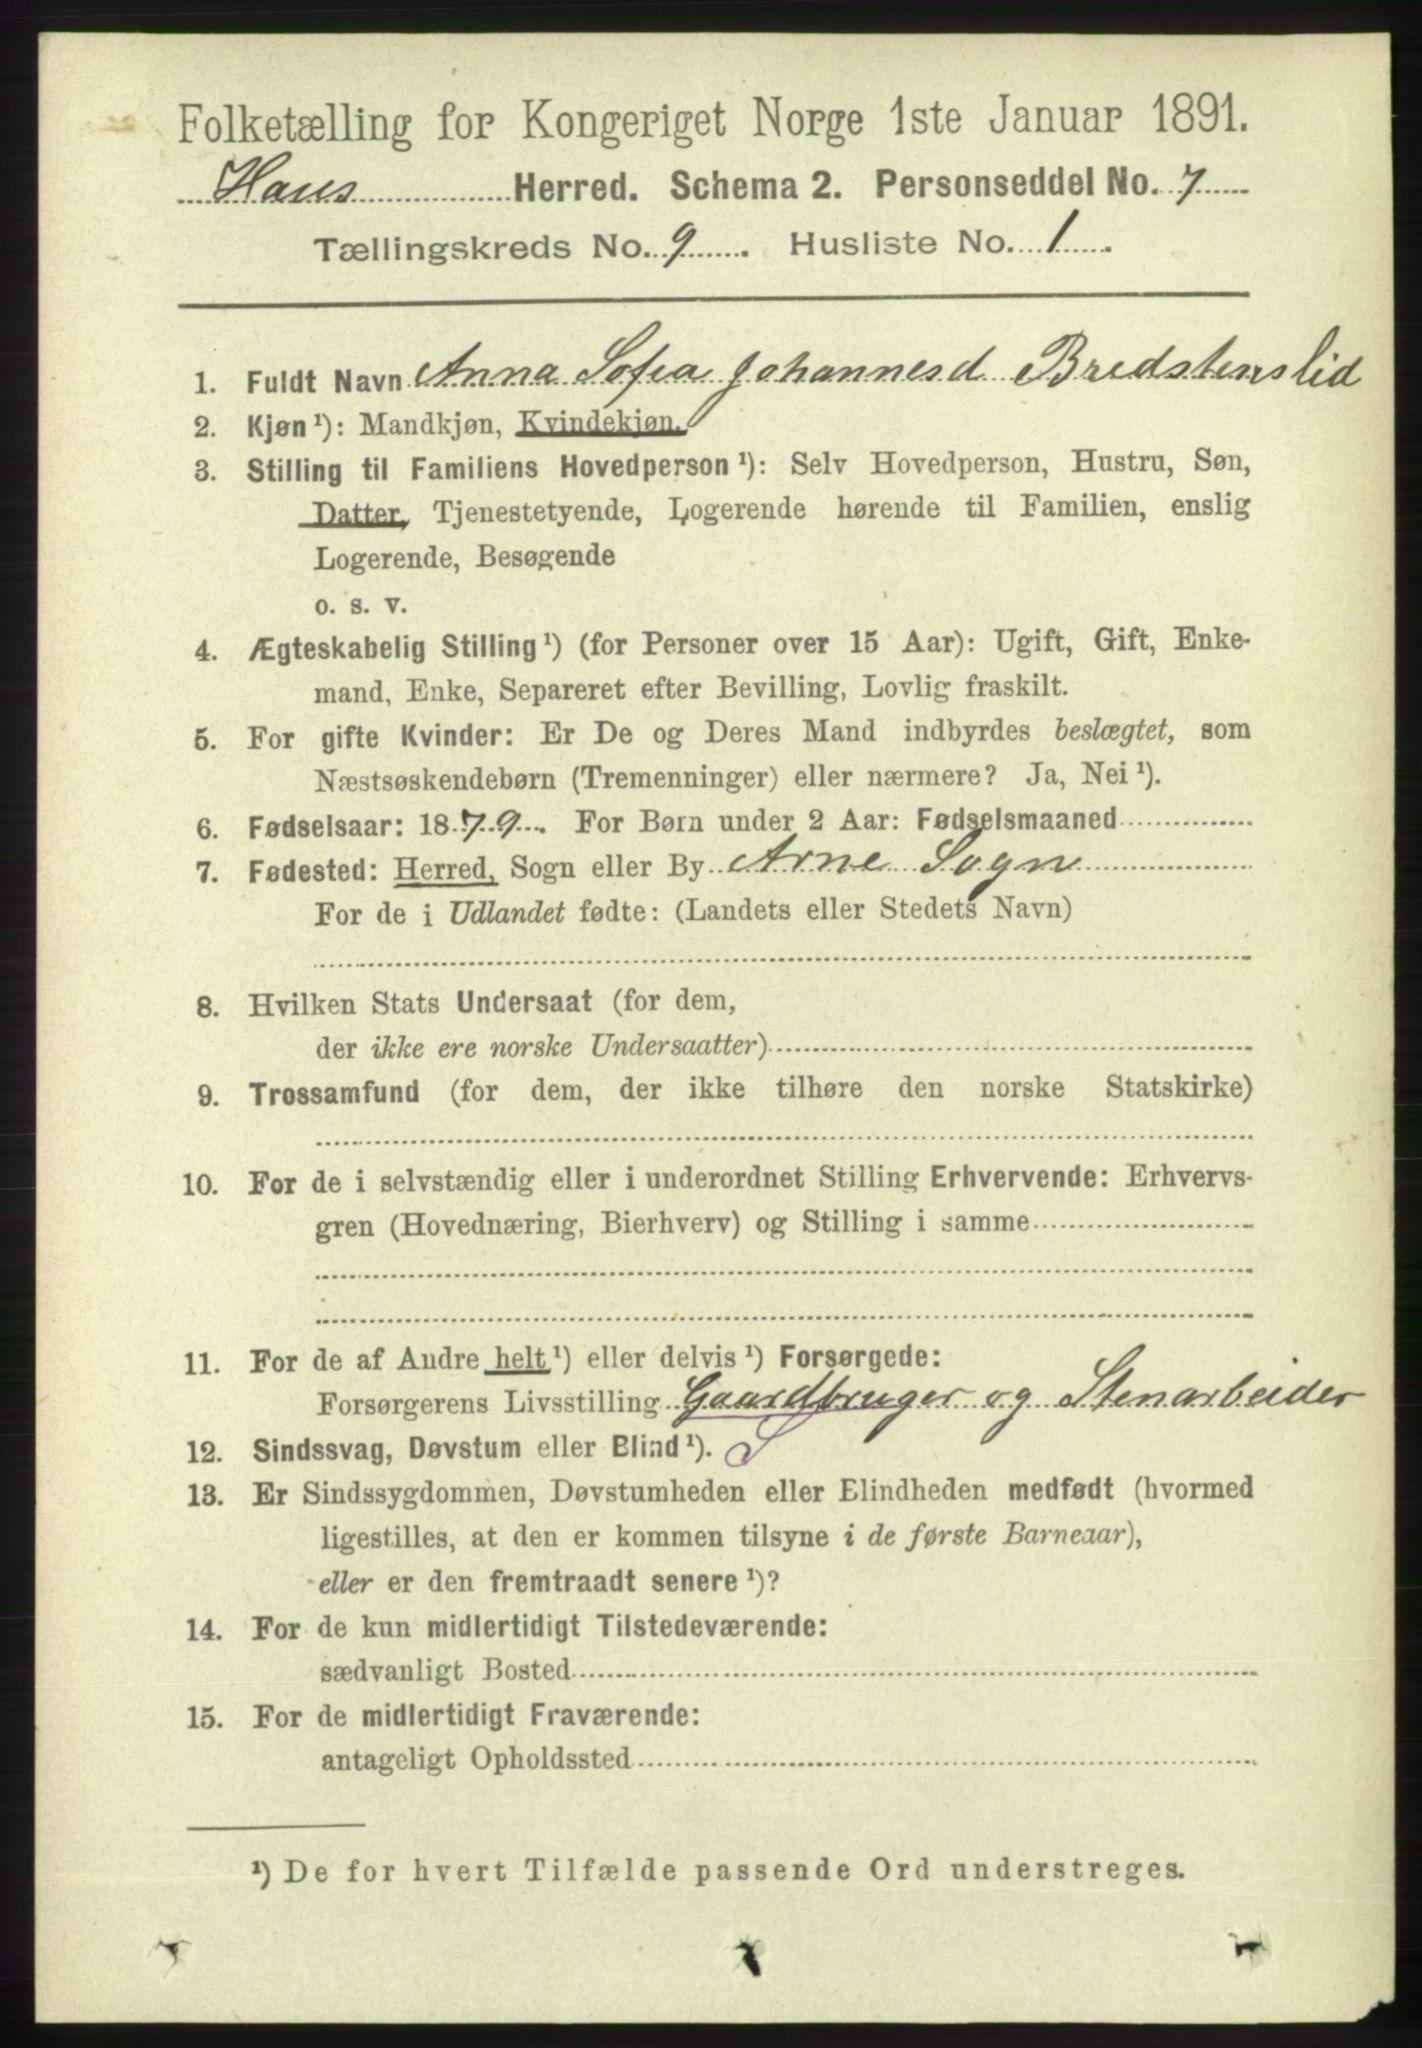 Folketælling for Kongeriget Norge 1ste Januar 1891.
Haus Herred. Schema 2. Personseddel No. 7
Tællingskreds No. 9. Husliste No. 1.
1. Fuldt Navn Anna Sofia Johannesd Bredstenslid
2. Kjøn¹): Mandkjøn, Kvindekjøn.
3. Stilling til Familiens Hovedperson¹): Selv Hovedperson, Hustru, Søn,
Datter, Tjenestetyende, Logerende hørende til Familien, enslig
Logerende, Besøgende
o. s. v.
4. Ægteskabelig Stilling¹) (for Personer over 15 Aar): Ugift, Gift, Enke-
mand, Enke, Separeret efter Bevilling, Lovlig fraskilt.
5. For gifte Kvinder: Er De og Deres Mand indbyrdes beslægtet, som
Næstsøskendebørn (Tremenninger) eller nærmere? Ja, Nei¹).
6. Fødselsaar: 1879. For Børn under 2 Aar: Fødselsmaaned
7. Fødested: Herred, Sogn eller By Arne Sogn
For de i Udlandet fødte: (Landets eller Stedets Navn)
8. Hvilken Stats Undersaat (for dem,
der ikke ere norske Undersaatter)
9. Trossamfund (for dem, der ikke tilhøre den norske Statskirke)
10. For de i selvstændig eller i underordnet Stilling Erhvervende: Erhvervs-
gren (Hovednæring, Bierhverv) og Stilling i samme
11. For de af Andre helt¹) eller delvis¹) Forsørgede:
Forsørgerens Livsstilling Gaardbruger og Stenarbeider
12. Sindssvag, Døvstum eller Blind¹). S
13. Er Sindssygdommen, Døvstumheden eller Blindheden medfødt (hvormed
ligestilles, at den er kommen tilsyne i de første Barneaar),
eller er den fremtraadt senere¹)?
14. For de kun midlertidigt Tilstedeværende:
sædvanligt Bosted
15. For de midlertidigt Fraværende:
antageligt Opholdssted
¹) De for hvert Tilfælde passende Ord understreges.